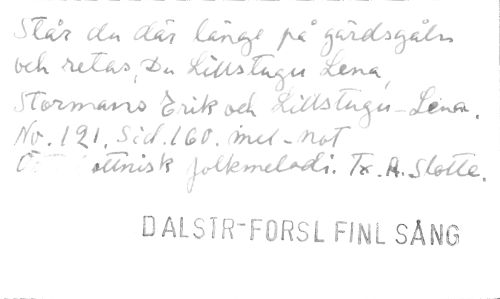 Står du där länge på gärdsgåln
och retas, Du Lillstugu Lena,
Stormans Erik och Lillstugu-Lena.
No. 121. Sid. 160. mel-not
folkmelodi. Tx. A. Slotte.
DALSTR-FORSL FINL SÅNG